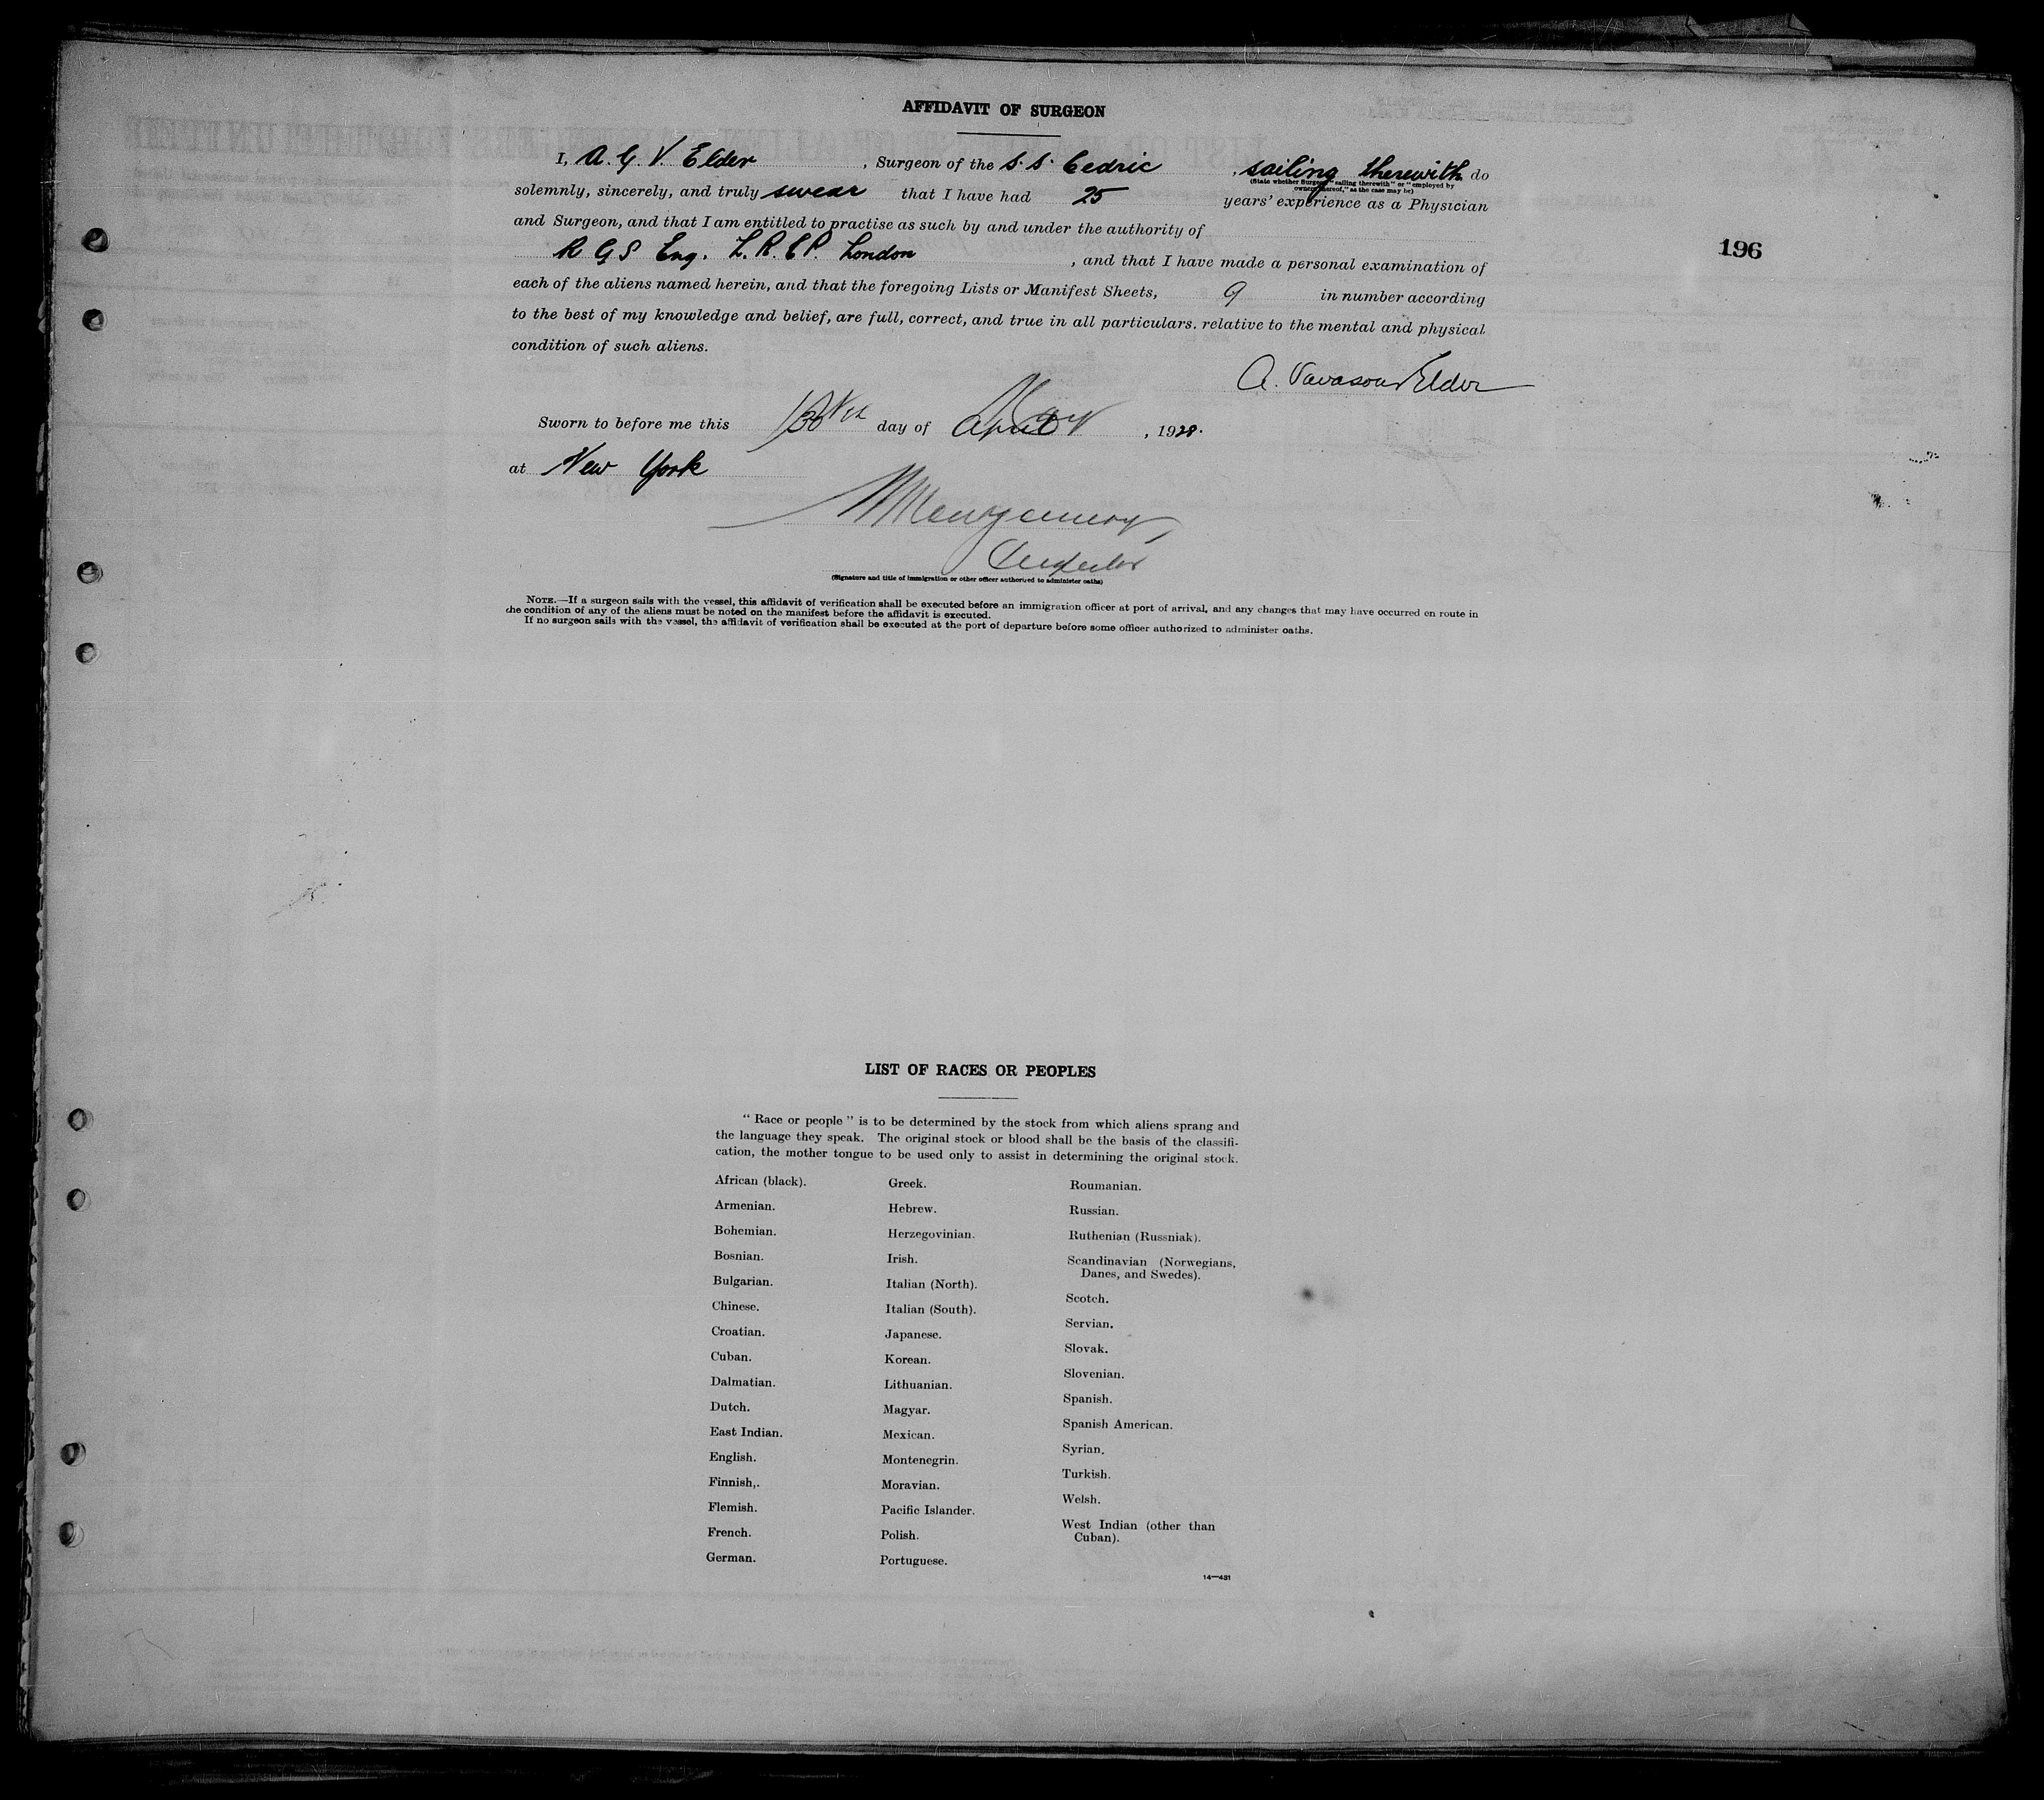 AFFIDAVIT OF SURGEON
196
I, A. G. V. Elder, Surgeon of the S.S. Cedric, sailing therewith do
(State whether Surgeon "sailing therewith" or "employed by
owners thereof," as the case may be)
solemnly, sincerely, and truly swear that I have had 25 years' experience as a Physician
and Surgeon, and that I am entitled to practise as such by and under the authority of
Eng. London, and that I have made a personal examination of
each of the aliens named herein, and that the foregoing Lists or Manifest Sheets, 9 in number according
to the best of my knowledge and belief, are full, correct, and true in all particulars. relative to the mental and physical
condition of such aliens.
A. Vavasour Elder
Sworn to before me this day of , 1928.
at New York
Montgomery
Inspector
(Signature and title of immigration or other officer authorized to administer oaths)
NOTE.—If a surgeon sails with the vessel, this affidavit of verification shall be executed before an immigration officer at port of arrival, and any changes that may have occurred en route in
the condition of any of the aliens must be noted on the manifest before the affidavit is executed.
If no surgeon sails with the vessel, the affidavit of verification shall be executed at the port of departure before some officer authorized to administer oaths.
LIST OF RACES OR PEOPLES
"Race or people" is to be determined by the stock from which aliens sprang and
the language they speak. The original stock or blood shall be the basis of the classifi-
cation, the mother tongue to be used only to assist in determining the original stock.
African (black).
Armenian.
Bohemian.
Bosnian.
Bulgarian.
Chinese.
Croatian.
Cuban.
Dalmatian.
Dutch.
East Indian.
English.
Finnish,.
Flemish.
French.
German.
Greek.
Hebrew.
Herzegovinian.
Irish.
Italian (North).
Italian (South).
Japanese.
Korean.
Lithuanian.
Magyar.
Mexican.
Montenegrin.
Moravian.
Pacific Islander.
Polish.
Portuguese.
Roumanian.
Russian.
Ruthenian (Russniak).
Scandinavian (Norwegians,
Danes, and Swedes).
Scotch.
Servian.
Slovak.
Slovenian.
Spanish.
Spanish American.
Syrian.
Turkish.
Welsh.
West Indian (other than
Cuban).
14—431